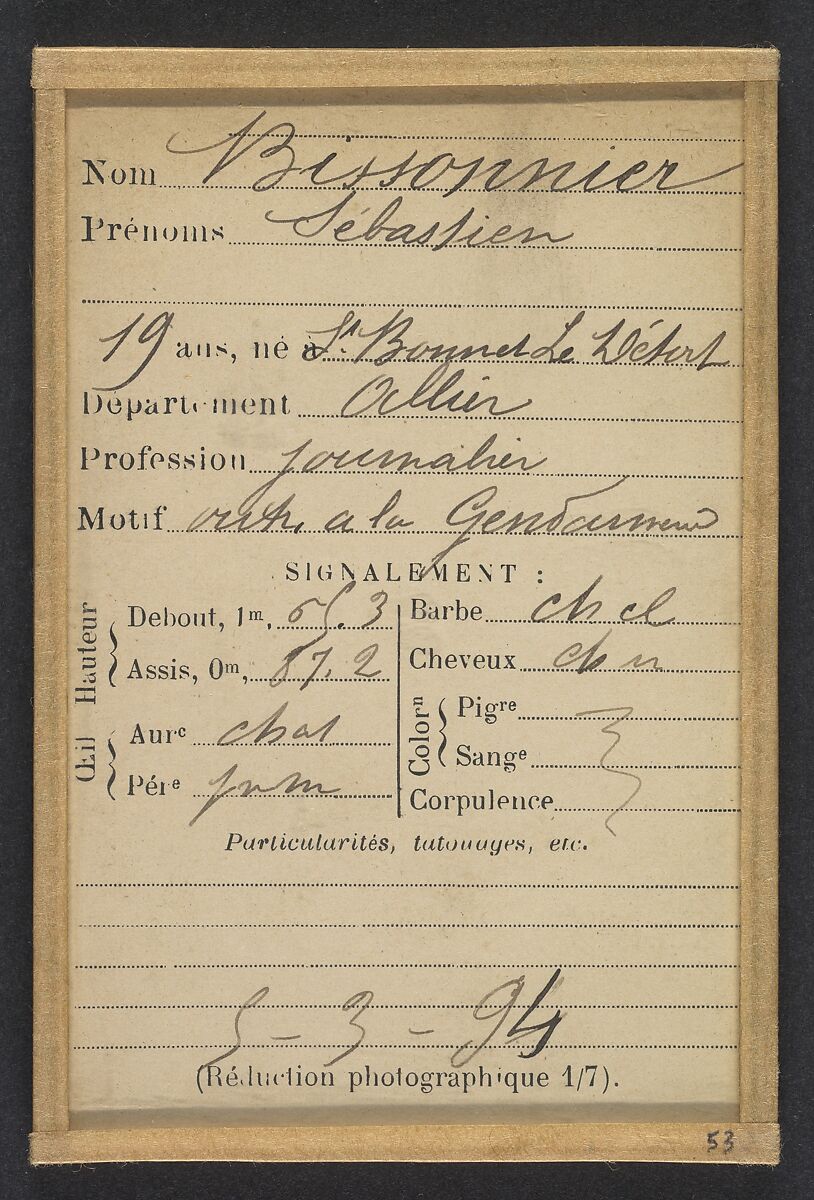 Nom Bissonnier
Prénoms Sébastien
19 ans, né à St. Bonnet Le Désert
Département Allier
Profession journalier
Motif outr. a la Gendarmerie
SIGNALEMENT :
Hauteur
Debout, 1m, 65.3
Assis, 0m, 87.2
Œil
Aurc chat
Pére
Barbe ch cl
Cheveux ch
Colorn
Pigre
Sange
Corpulence
Particularités, tatouages, etc.
5 - 3 - 94
(Réduction photographique 1/7).
53